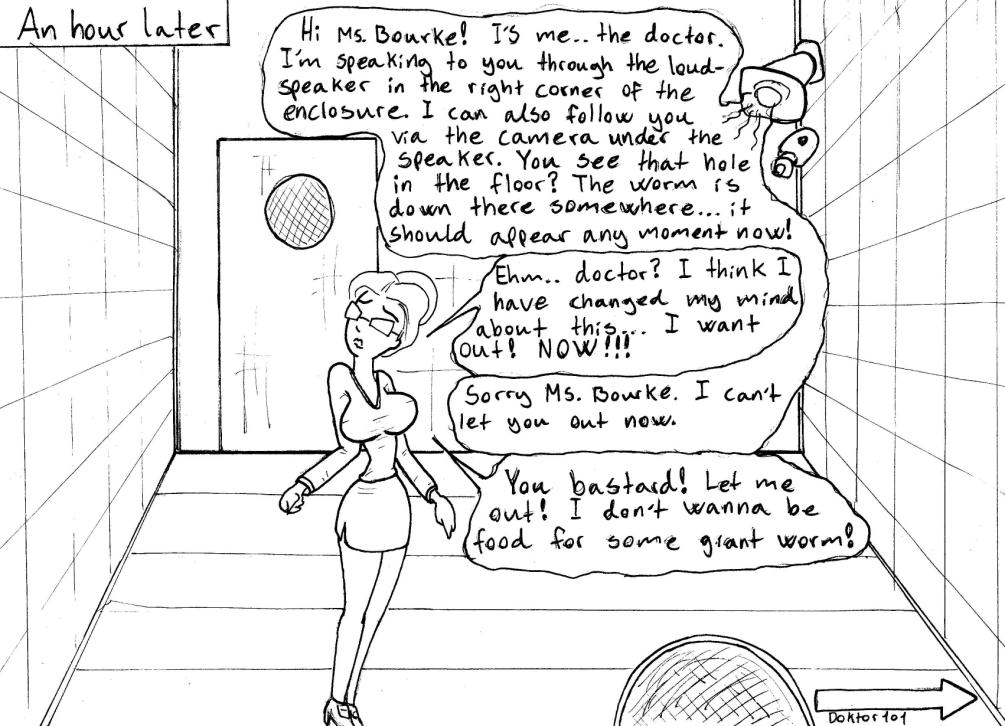 An hour later
Hi Ms. Bourke! I'S me.. the doctor.
I'm speaking to you through the loud-
speaker in the right corner of the
enclosure. I can also follow you
via the camera under the
speaker. You see that hole
in the floor? The worm is
down there somewhere... it
should appear any moment now!
Ehm.. doctor? I think I
have changed my mind
about this... I want
out! NOW!!!
Sorry Ms. Bourke. I can't
let you out now.
You bastard! Let me
out! I don't wanna be
food for some giant worm!
Doktor101